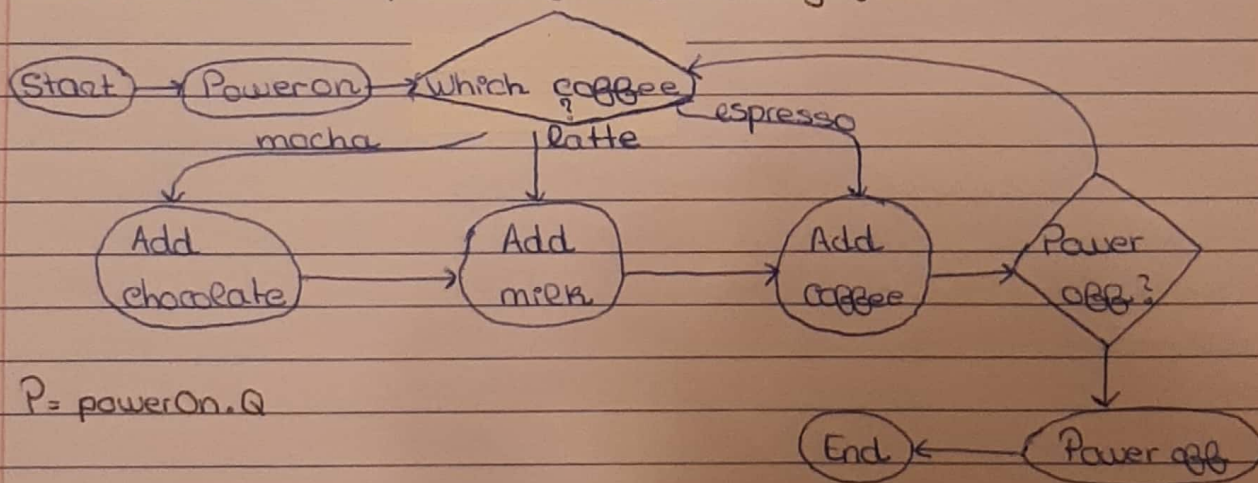 Start
Power on
Which coffee
?
mocha
latte
espresso
Add
chocolate
Add
milk
Add
coffee
Power
off?
P= powerOn.Q
End
Power off